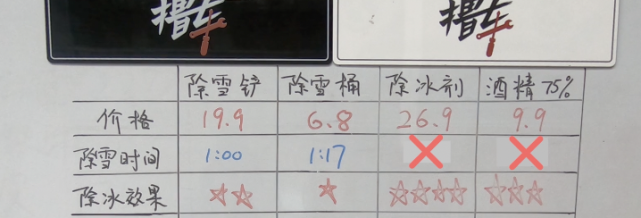 撸车 撸车
除雪铲 除雪桶 除冰剂 酒精75%
价格 19.9 6.8 26.9 9.9
除雪时间 1:00 1:17
除冰效果